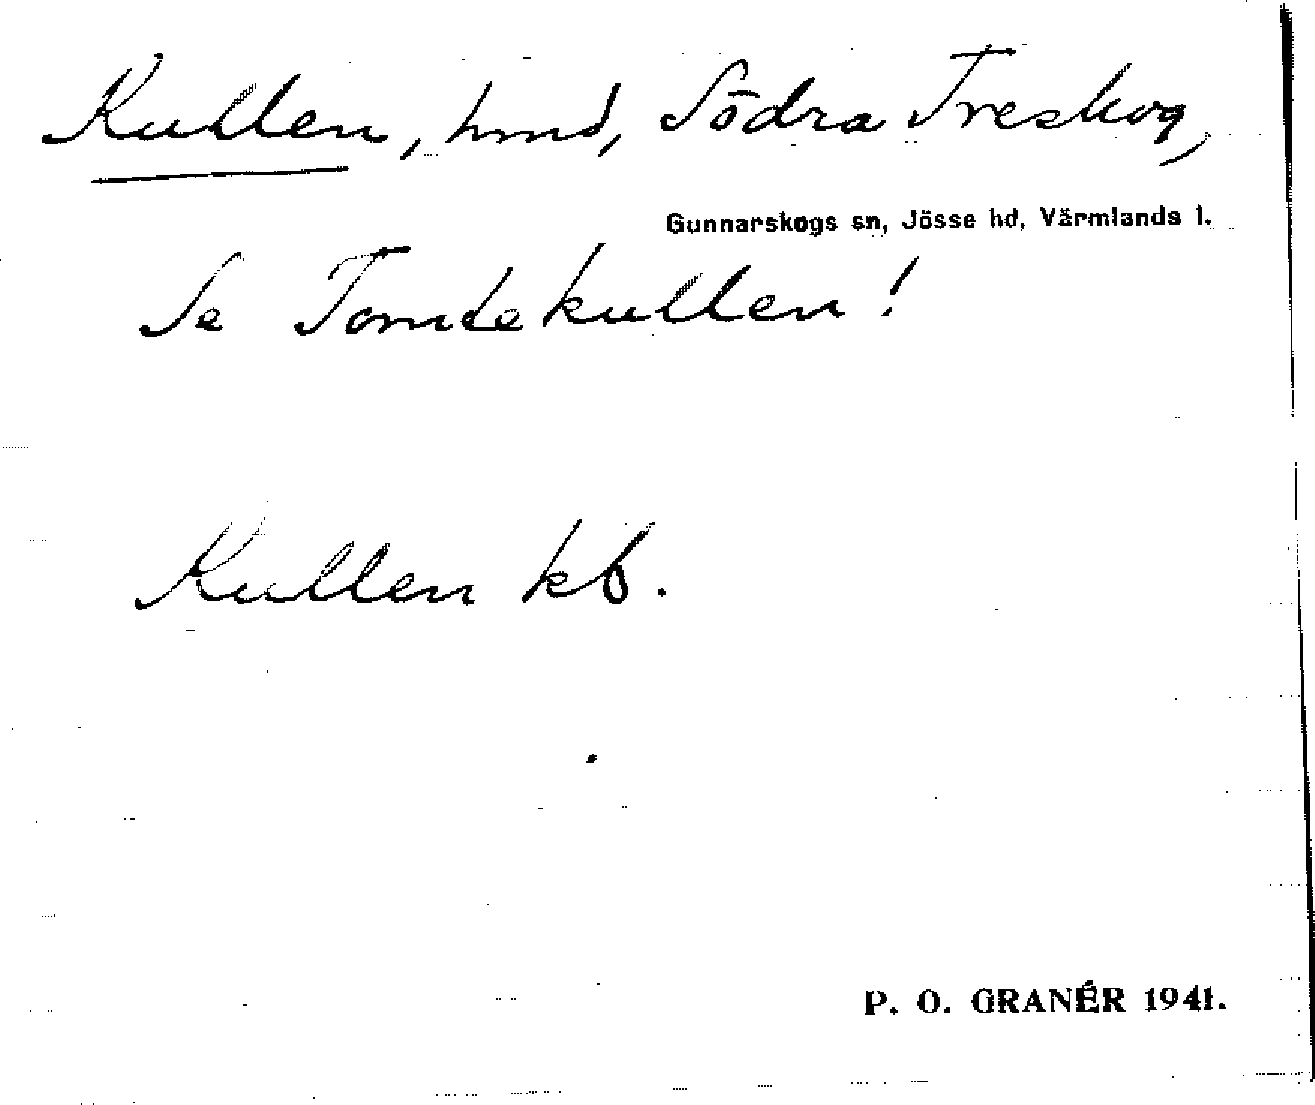 Kullen, hmd, Södra Treskog,
Gunnarskogs sn, Jösse hd, Värmlands l.
Se Tomtekullen!
Kullen kb.
P. O. GRANÉR 1941.